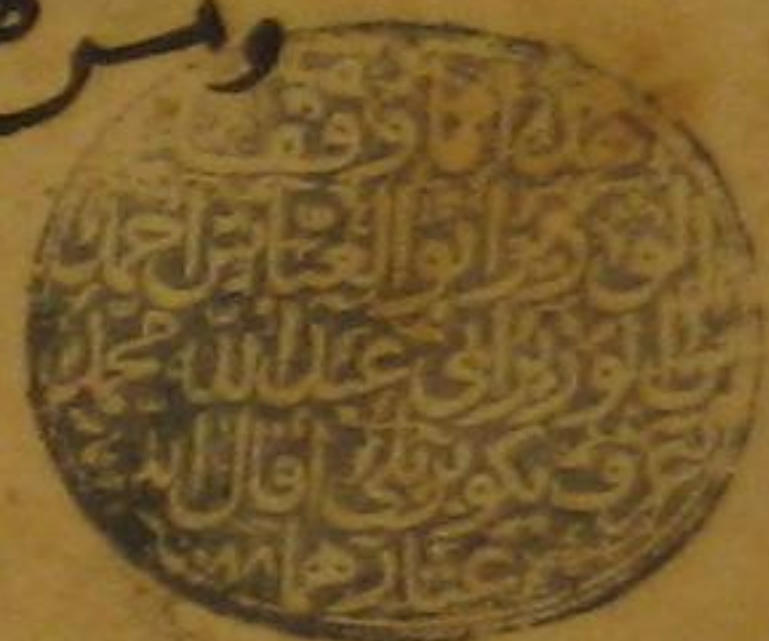 ومن
هذا ما وقف
الوزير ابو العباس احمد
بن الوزير ابي عبد الله محمد
عرف بكوبريلي اقال الله
عثارهما ١٠٨٨